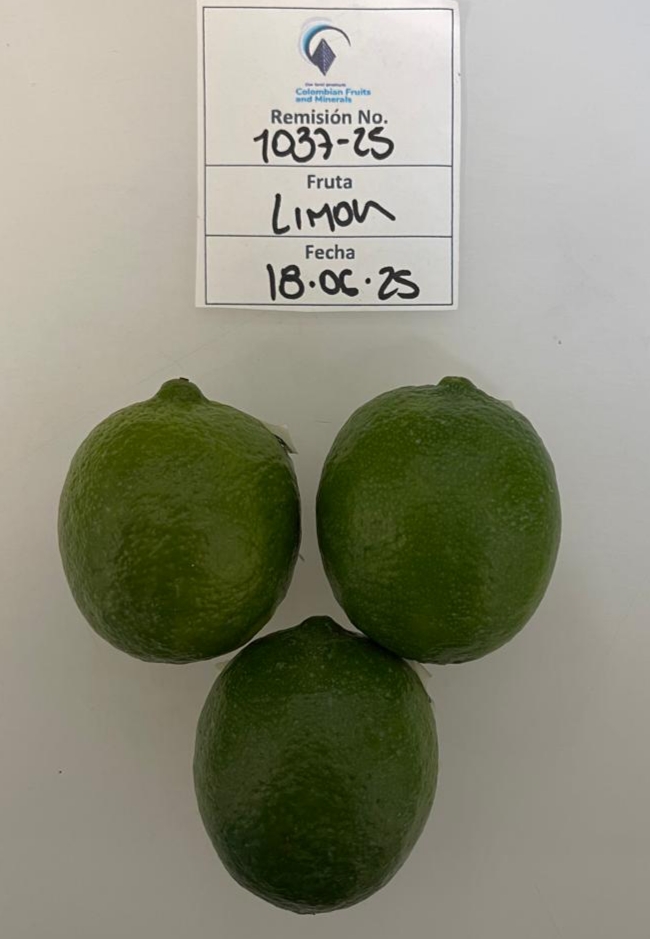 Colombian Fruits
and Minerals
Remisión No.
1037-25
Fruta
LIMON
Fecha
18.06.25